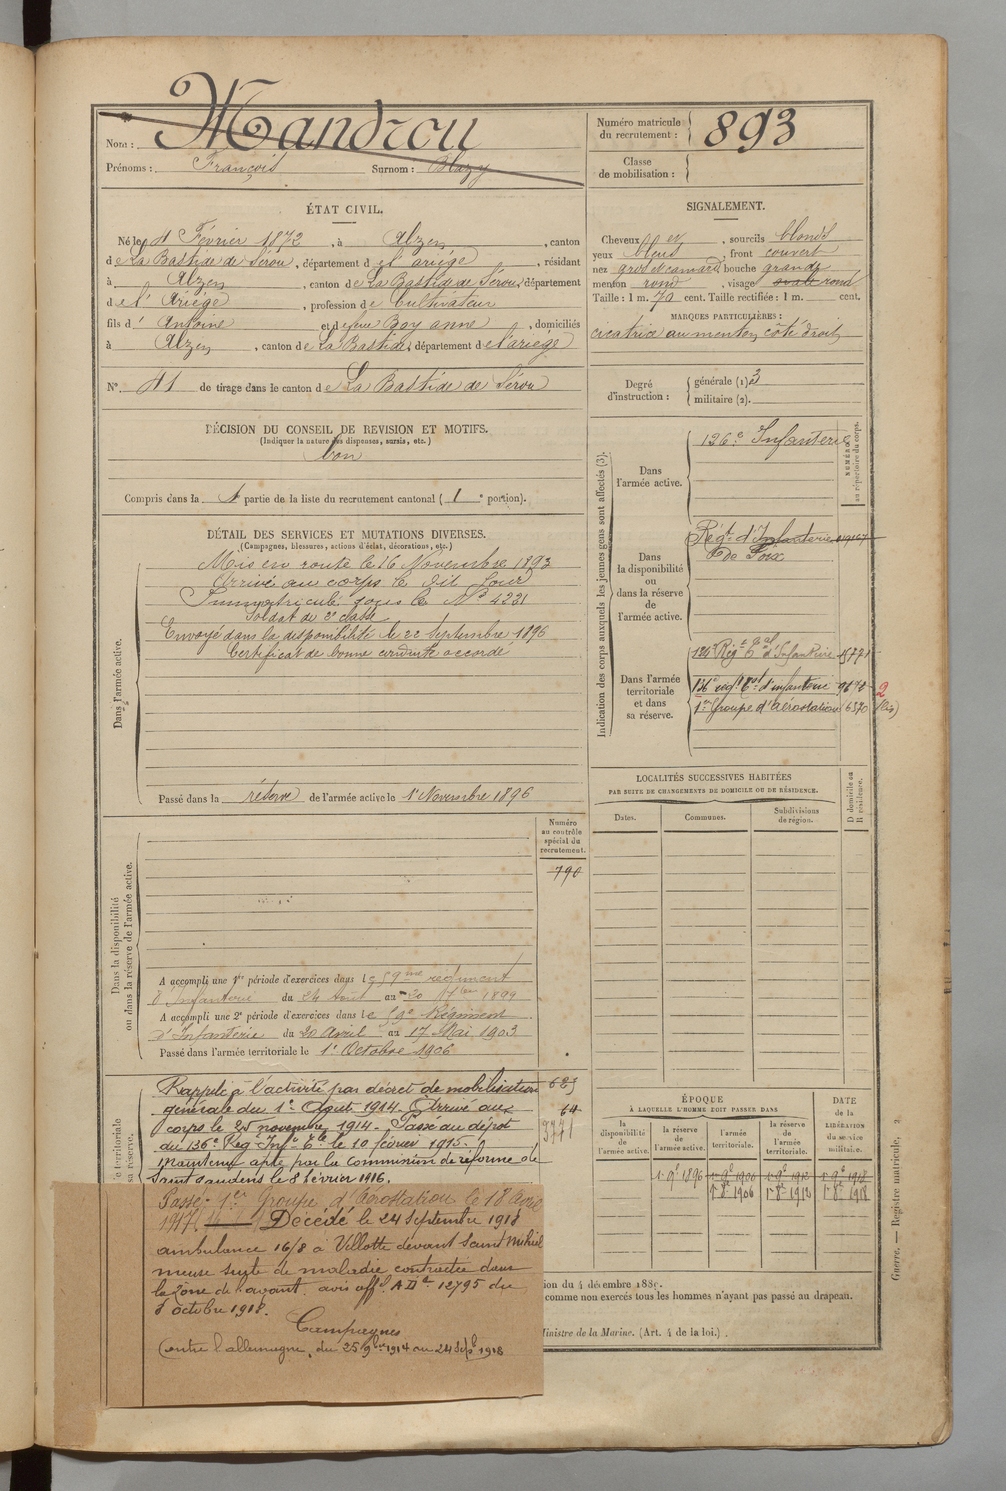 Nom : Mandrou
Prénoms : François Surnom : Blazy
Numéro matricule du recrutement : 893
Classe de mobilisation :
ÉTAT CIVIL.
Né le 4 Février 1872, à Alzen, canton
de La Bastide de Sérou, département de l'ariége, résidant
à Alzen, canton de La Bastide de Sérou, département
de l'Ariége, profession de Cultivateur
fils d' Antoine et de feue Boy anne, domiciliés
à Alzen, canton de La Bastide, département de l'ariége
N° 41 de tirage dans le canton de La Bastide de Sérou
DÉCISION DU CONSEIL DE REVISION ET MOTIFS.
(Indiquer la nature des dispenses, sursis, etc.)
bon
Compris dans la 1 partie de la liste du recrutement cantonal (1e portion).
DÉTAIL DES SERVICES ET MUTATIONS DIVERSES.
(Campagnes, blessures, actions d'éclat, décorations, etc.)
Dans l'armée active.
Mis en route le 16 Novembre 1893
Arrivé au corps le dit jour
Immatriculé sous le N° 4231
Soldat de 2e classe
Envoyé dans la disponibilité le 22 Septembre 1896
Certificat de bonne conduite accordé
Passé dans la réserve de l'armée active le 1r Novembre 1896
Numéro au contrôle spécial du recrutement.
790
Dans la disponibilité ou dans la réserve de l'armée active.
A accompli une 1re période d'exercices dans le 59me regiment
d'Infanterie du 24 Aout au 20 7bre 1899
A accompli une 2e période d'exercices dans le 59e Régiment
d'Infanterie du 20 Avril au 17 Mai 1903
Passé dans l'armée territoriale le 1r Octobre 1906
e territoriale
sa réserve.
Rappelé à l'activité par décret de mobilisation
générale du 1er Aout 1914. Arrivé au
corps le 25 novembre 1914. Passé au dépot
du 136e Reg. Infie Tle le 10 février 1915.
Maintenu apte par la commission de réforme de
Saint Gaudens le 8 février 1916.
64
Passé 1er Groupe d'Aérostation le 18 avril
1917. Décédé le 24 Septembre 1918
ambulance 16/8 à Villotte devant Saint Mihiel
meuse suite de maladie contractée dans
la zone de l'avant. avis offel AD 12795 du
octobre 1918.
Campagnes
Contre l'allemagne, du 25 9bre 1914 au 24 Sept 1918
SIGNALEMENT.
Cheveux et, sourcils blonds
yeux bleus, front couvert
nez gros et camard, bouche grande
menton rond, visage ovale rond
Taille : 1 m. 70 cent. Taille rectifiée : 1 m. cent.
MARQUES PARTICULIÈRES :
cicatrice au menton côté droit
Degré d'instruction : générale (1) 3
militaire (2).
Indication des corps auxquels les jeunes gens sont affectés (3).
NUMÉRO au répertoire du corps.
Dans l'armée active.
126e Infanterie
Dans la disponibilité ou dans la réserve de l'armée active.
Régt d'Infanterie
de Foix
Dans l'armée territoriale et dans sa réserve.
136e regt Tal d'infanterie
1er Groupe d'Aérostation 6520
LOCALITÉS SUCCESSIVES HABITÉES
PAR SUITE DE CHANGEMENTS DE DOMICILE OU DE RÉSIDENCE.
Dates. Communes. Subdivisions de région. D domicile ou R résidence.
ÉPOQUE
À LAQUELLE L'HOMME DOIT PASSER DANS
DATE de la LIBÉRATION du service militaire.
la disponibilité de l'armée active.
la réserve de l'armée active.
l'armée territoriale.
la réserve de l'armée territoriale.
1r 9e 1896 1r 9e 1906 1r 9e 1912 1r 9e 1918
1r 8e 1906 1r 8e 1912 1r 8e 1918
ion du 4 décembre 1889.
comme non exercés tous les hommes n'ayant pas passé au drapeau.
Ministre de la Marine. (Art. 4 de la loi.)
Guerre. — Registre matricule. 2